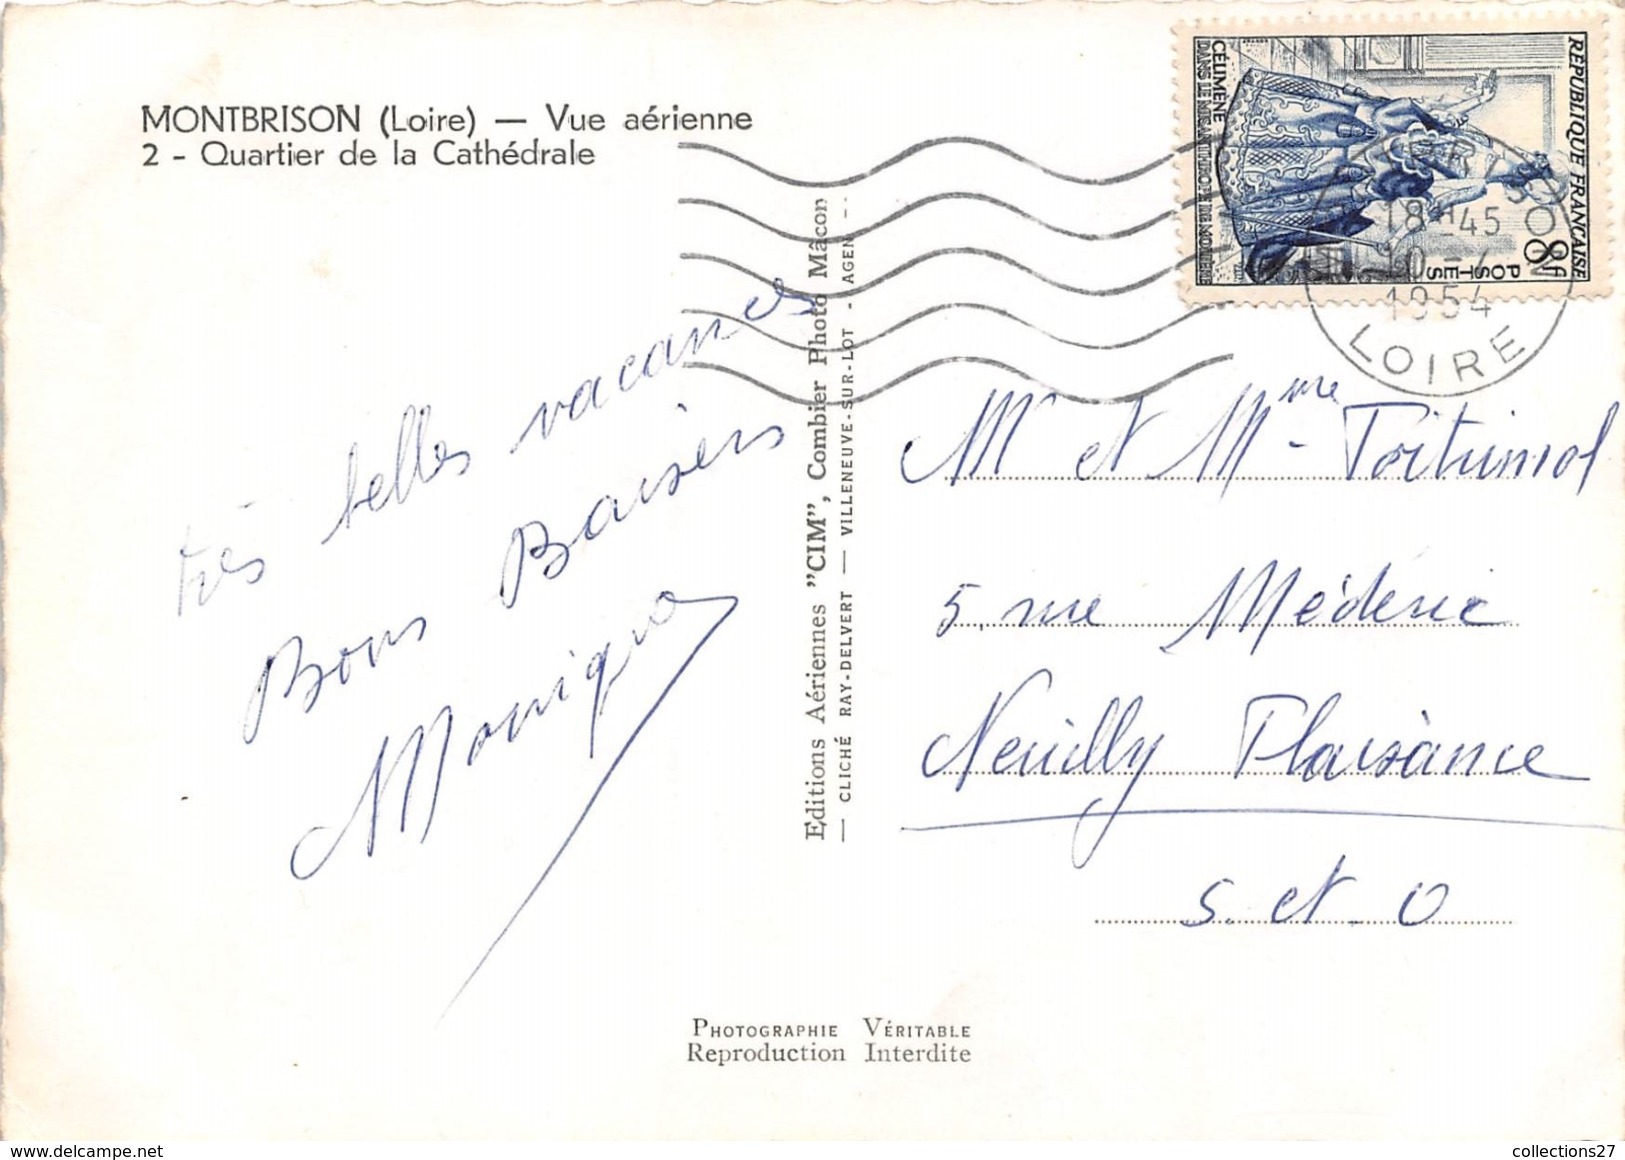 MONTBRISON (Loire) — Vue aérienne
2 - Quartier de la Cathédrale
très belles vacances
Bons Baisers
Monique
Editions Aériennes "CIM", Combier Photo Mâcon
— CLICHÉ RAY-DELVERT — VILLENEUVE-SUR-LOT - AGEN —
RÉPUBLIQUE FRANÇAISE
8F
POSTES
CÉLIMÈNE
DANS LE MISANTHROPE DE MOLIÈRE
18H-45
1954
LOIRE
Mr et Mme
5, rue Médéric
Neuilly Plaisance
S. et O
PHOTOGRAPHIE VÉRITABLE
Reproduction Interdite
collections27